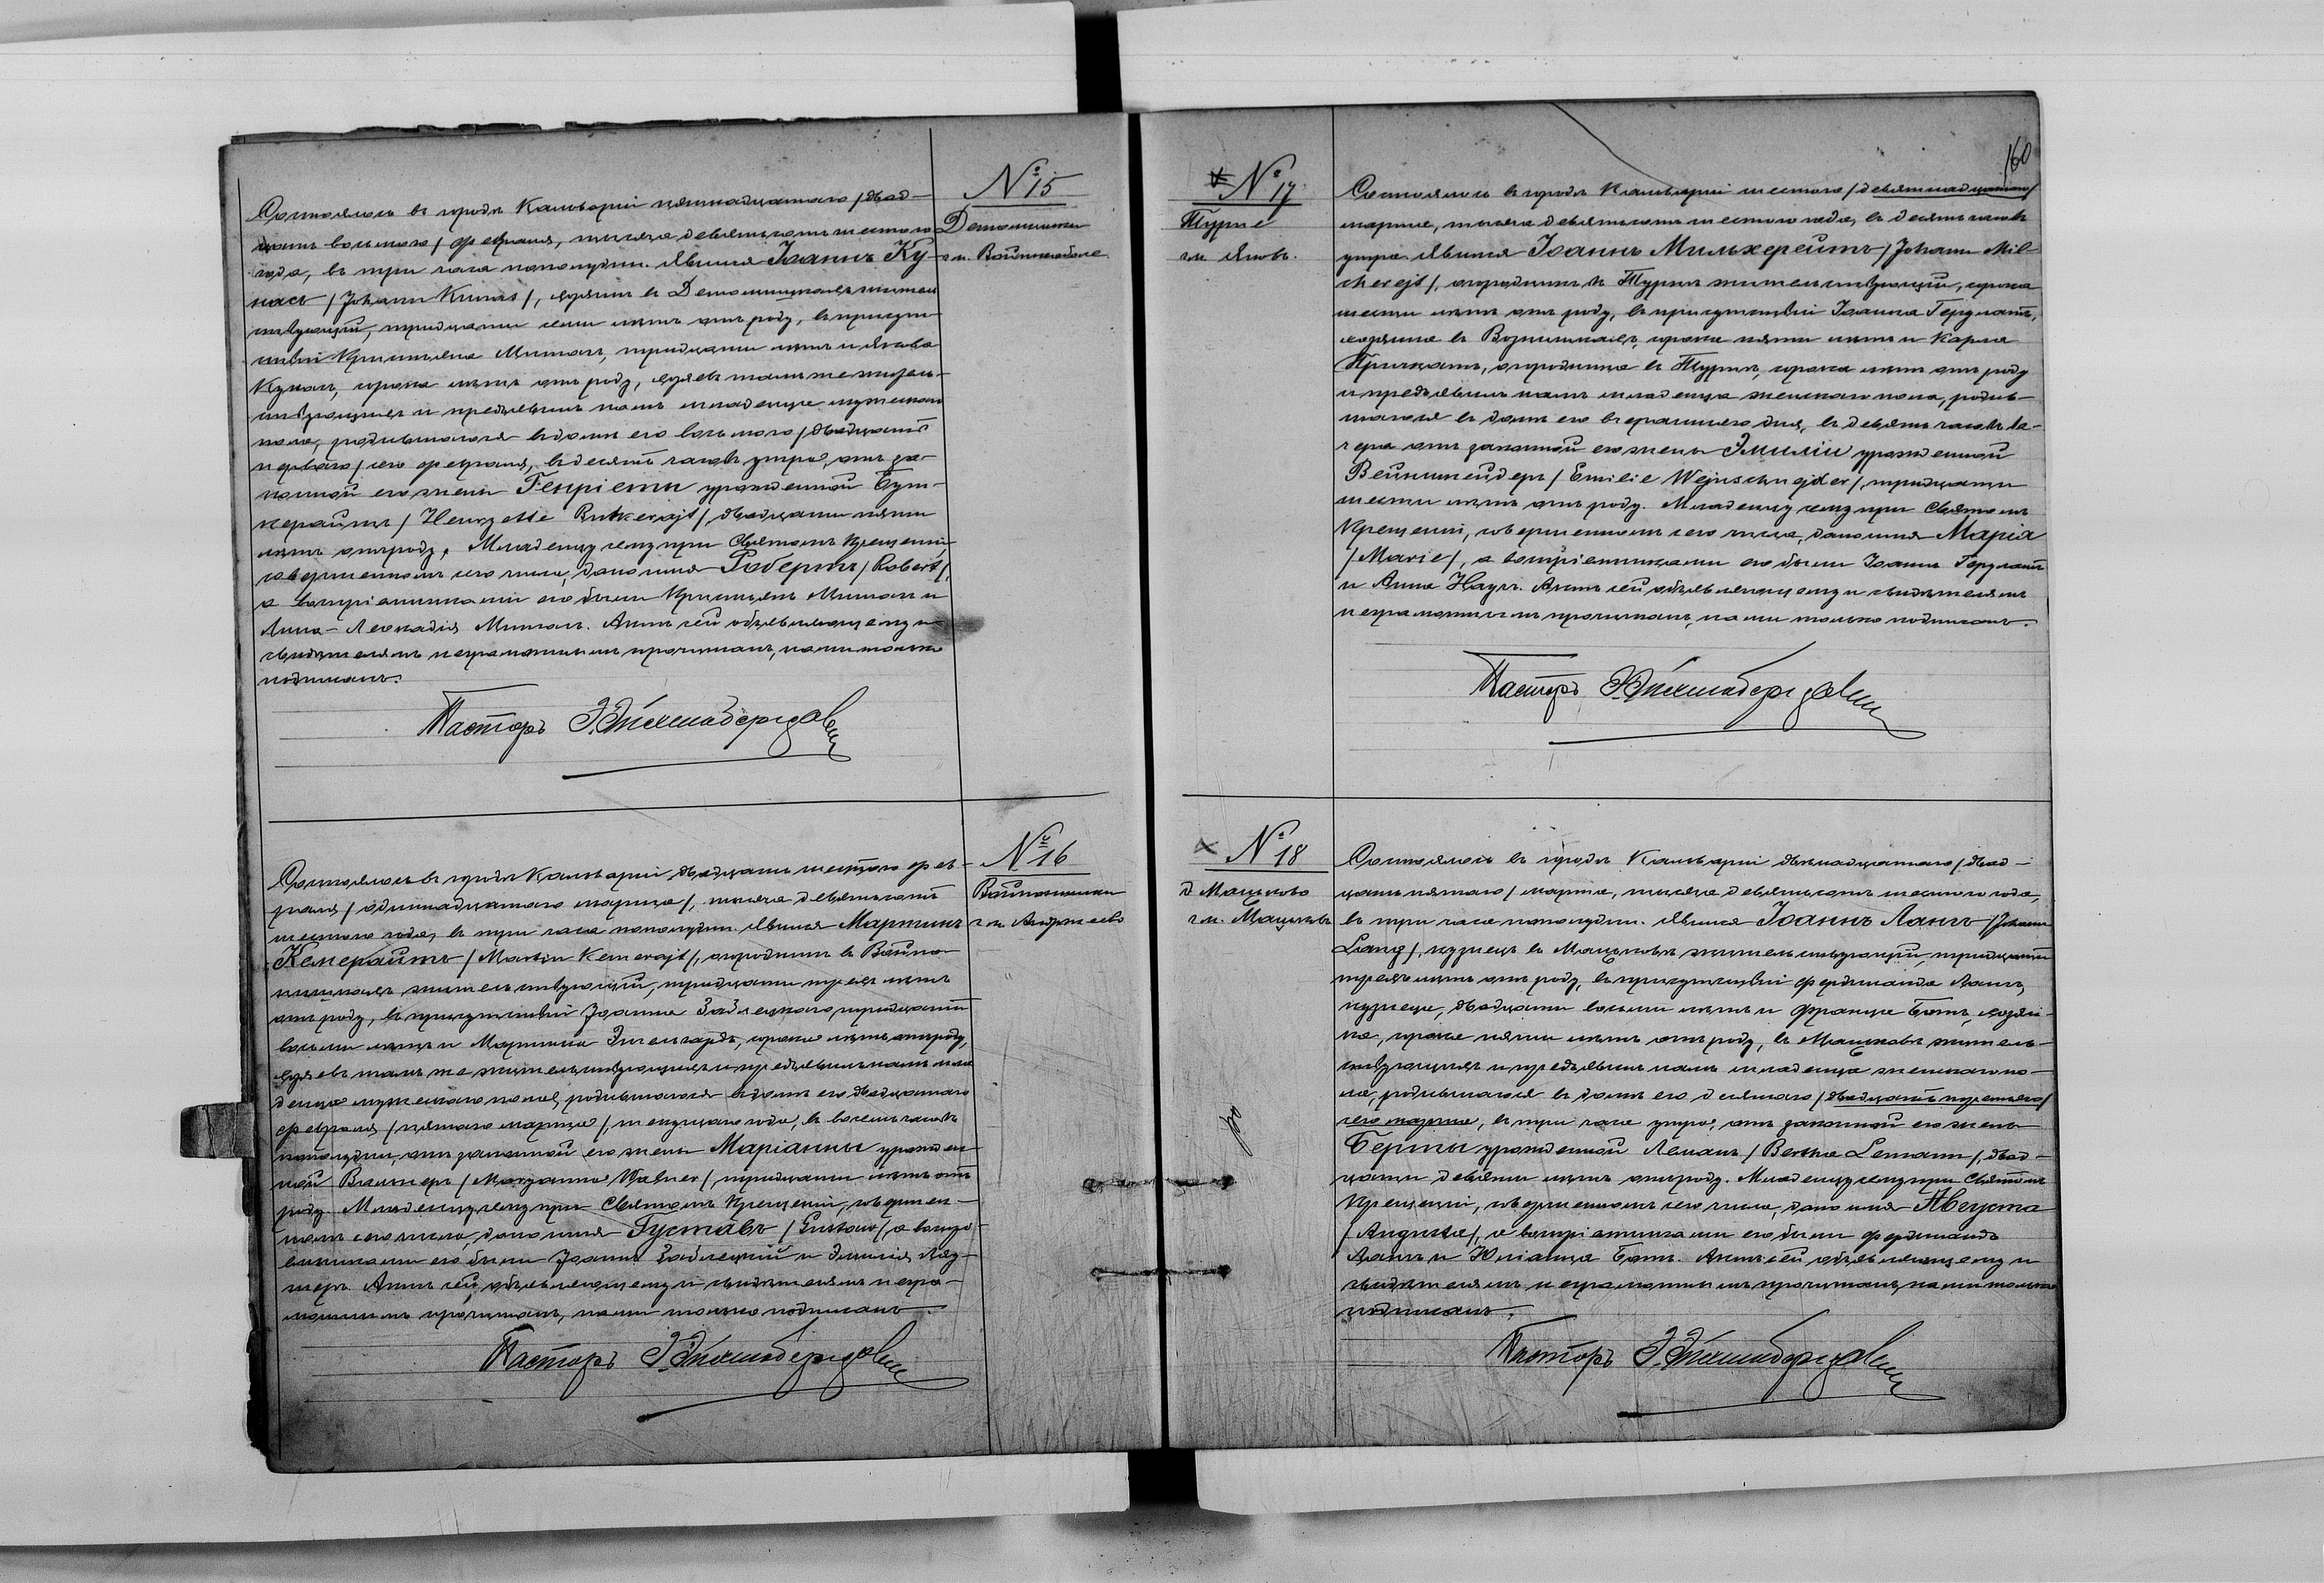 № 15
Состоялось въ городѣ Кальваріи пятнадцатаго /двад-
цать восьмого/ февраля, тысяча девятьсотъ шестого
года, въ три часа пополудни. Явился Іоаннъ Ку-
насъ /Johann Kunas/, хозяинъ въ жительствующій, тридцати семи лѣтъ отъ роду, въ присут-
ствіи Кристьяна Миллат, тридцати лѣтъ и Якова
Кунасъ, сорока лѣтъ отъ роду, хозяевъ тамъ же житель-
ствующихъ и предъявилъ намъ младенца мужескаго
пола, родившагося въ домѣ его восьмого /двадцать
перваго/ сего февраля, въ десять часовъ утра, отъ за-
конной его жены Генріеты урожденной Бут-
керайтъ /Henryette Butkerajt/, двадцати пяти
лѣтъ отъ роду. Младенцу сему при Святомъ Крещеніи,
совершенномъ сего числа, дано имя Робертъ /Robert/,
а воспріемниками его были Кристьянъ и
Анна-Леокадія. Актъ сей объявляющему и
свидѣтелямъ неграмотнымъ прочитанъ, нами только
подписанъ.
Пасторъ
№ 16
Войпонишки
гм. Андржеево
Состоялось въ городѣ Кальваріи, двадцать шестого фев-
раля /одиннадцатаго марта/, тысяча девятьсотъ
шестого года, въ три часа пополудни. Явился Мартинъ
Кемерайтъ /Martin Kemerajt/, огородникъ въ Войпо-
нишкахъ жительствующій, тридцати трехъ лѣтъ
отъ роду, въ присутствіи Іоанна Заблецкаго, тридцати
восьми лѣтъ и Мартина Энгельгардъ, сорока лѣтъ отъ роду,
хозяевъ тамъ же жительствующихъ и предъявилъ намъ мла-
денца мужескаго пола, родившагося въ домѣ его двадцатаго
февраля /пятаго марта/, текущаго года, въ восемь часовъ
пополудни, отъ законной его жены Маріанны урожден-
ной Вальнеръ /Maryanna Walner/, тридцати лѣтъ отъ
роду. Младенцу сему при Святомъ Крещеніи, совершен-
номъ сего числа, дано имя Густавъ /Gustaw/, а воспрі-
емниками его были Іоаннъ Заблецкій и Эмилія.
Актъ сей объявляющему и свидѣтелямъ негра-
мотнымъ прочитанъ, нами только подписанъ.
Пасторъ
160
№ 17
Турпе
гм. Яновъ.
Состоялось въ городѣ Кальваріи шестого /девятнадцатаго/
марта, тысяча девятьсотъ шестого года, въ десять часовъ
утра. Явился Іоаннъ Мильхерейтъ /Johann Mil-
cherejt/, огородникъ въ Турпѣ жительствующій, сорока
шести лѣтъ отъ роду, въ присутствіи Іоанна Герулатъ,
хозяина въ, сорока пяти лѣтъ и Карла
огородника въ Турпѣ, сорока лѣтъ отъ роду
и предъявилъ намъ младенца женскаго пола, родив-
шагося въ домѣ его вчерашняго дня, въ девять часовъ ве-
чера отъ законной его жены Эмиліи урожденной
Вейншнейдеръ /Emilie Wejnschnejder/, тридцати
шести лѣтъ отъ роду. Младенцу сему при Святомъ
Крещеніи, совершенномъ сего числа, дано имя Марія
/Marie/, а воспріемниками его были Іоаннъ Герулатъ
и Анна Науч. Актъ сей объявляющему и свидѣтелямъ
неграмотнымъ прочитанъ, нами только подписанъ.
Пасторъ
№ 18
д. Мацьково
гм. Мацьковъ
Состоялось въ городѣ Кальваріи двѣнадцатаго /двад-
цать пятаго/ марта, тысяча девятьсотъ шестого года,
въ три часа пополудни. Явился Іоаннъ Лангъ /Johann
Lang/, кузнецъ въ Мацьковѣ жительствующій, тридцати
трехъ лѣтъ отъ роду, въ присутствіи Фердинанда Лангъ,
кузнеца, двадцати восьми лѣтъ и Франца Ботъ, хозяи-
на, сорока пяти лѣтъ отъ роду, въ Мацьковѣ житель-
ствующихъ и предъявилъ намъ младенца женскаго по-
ла, родившагося въ домѣ его десятаго /двадцать третьяго/
сего марта, въ три часа утра, отъ законной его жены
Берты урожденной Леманъ /Bertha Lemann/, двад-
цати девяти лѣтъ отъ роду. Младенцу сему при Святомъ
Крещеніи, совершенномъ сего числа, дано имя Августа
/Auguste/, а воспріемниками его были Фердинандъ
Лангъ и Юліанна Ботъ. Актъ сей объявляющему и
свидѣтелямъ неграмотнымъ прочитанъ, нами только
подписанъ.
Пасторъ